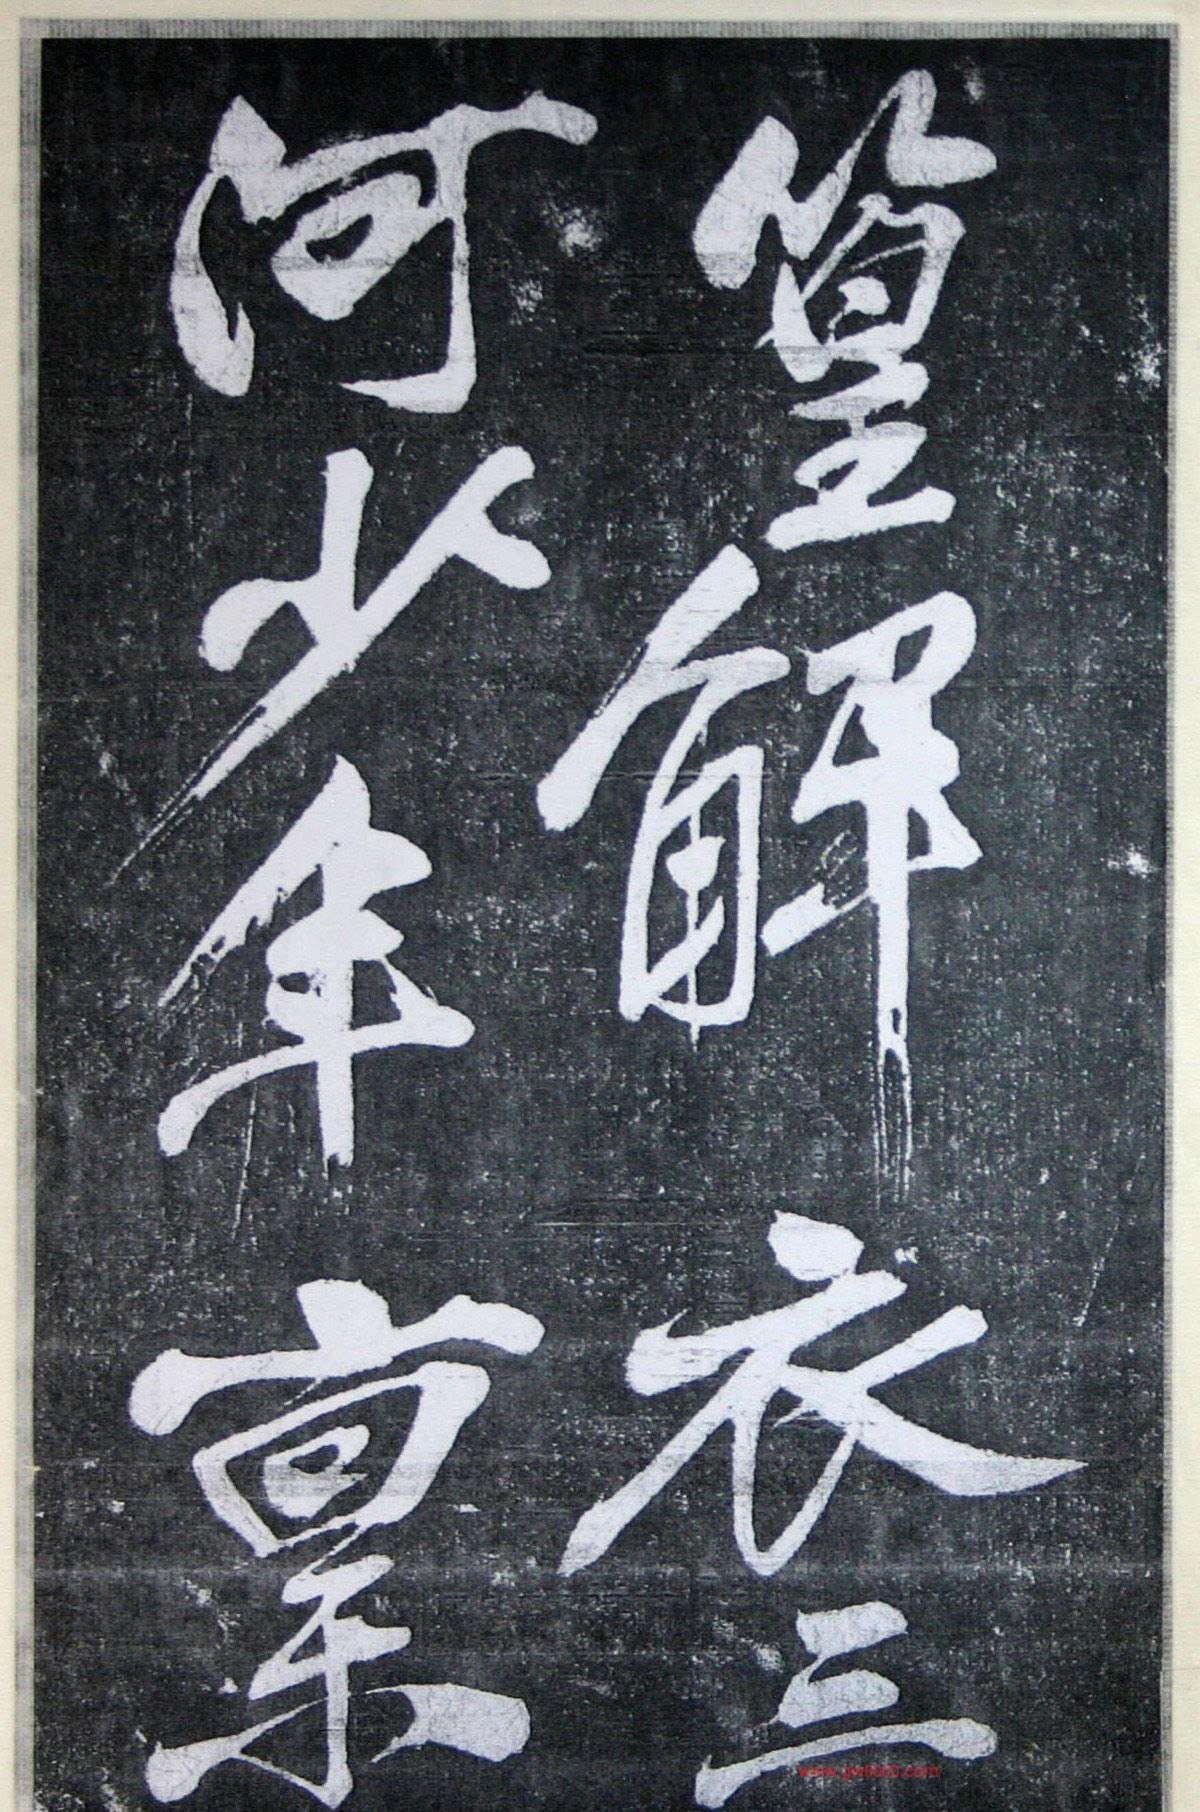 篁解衣三
河少年稟
www.gw5000.com